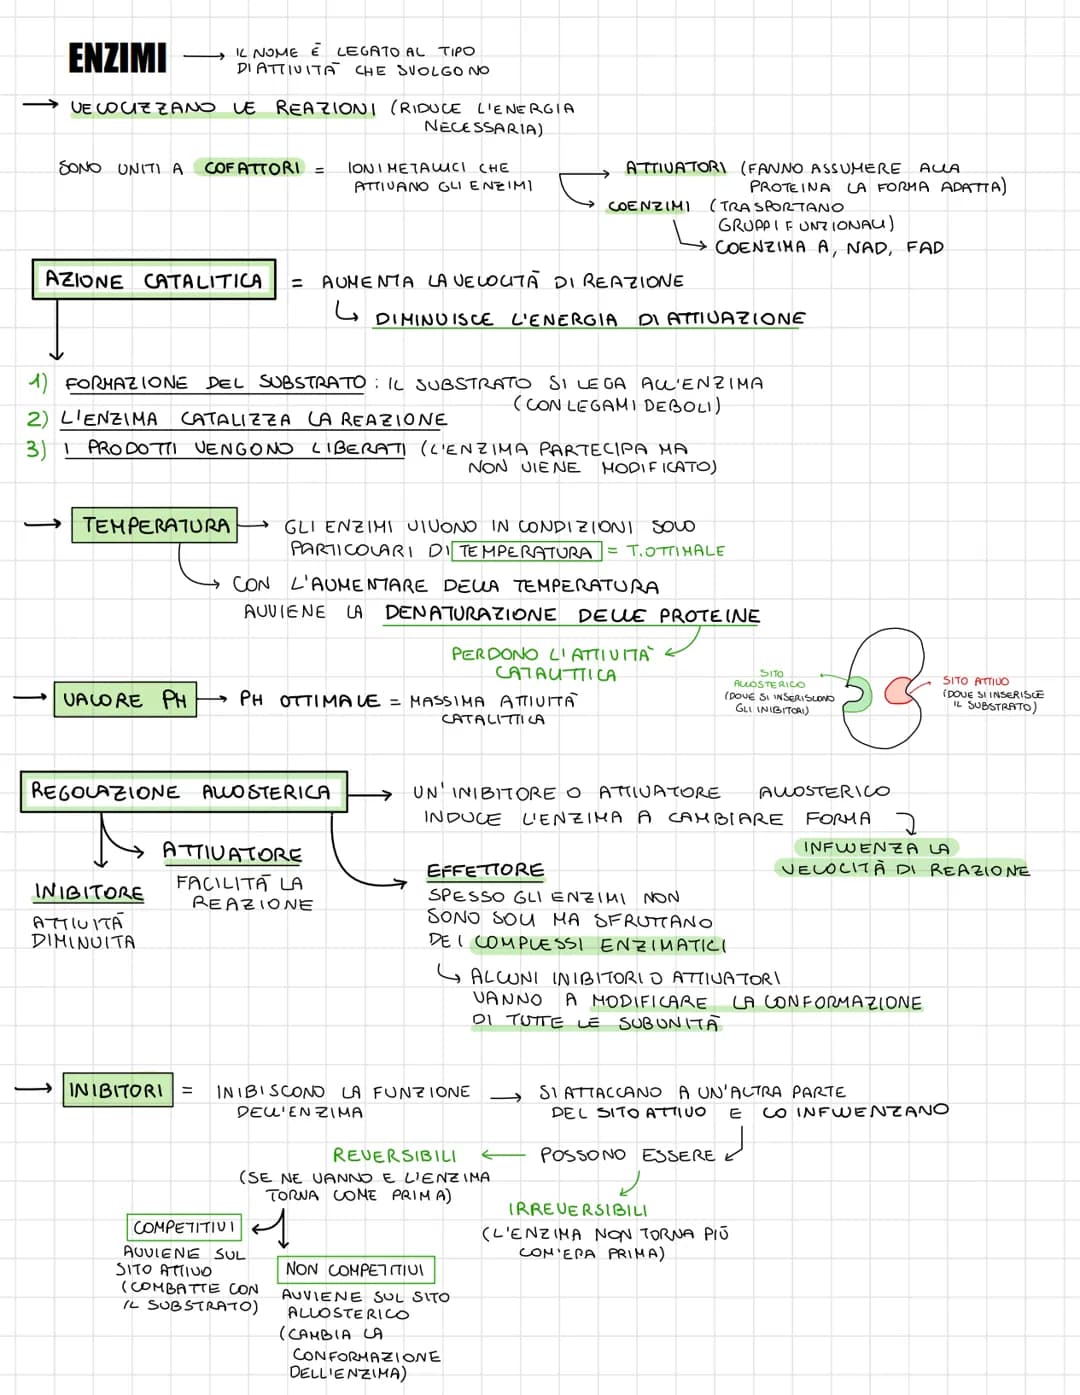 ENZIMI → IL NOME È LEGATO AL TIPO
DI ATTIVITÀ CHE SVOLGONO
→ VELOCIZZANO LE REAZIONI (RIDUCE L'ENERGIA
NECESSARIA)
SONO UNITI A COFATTORI = IONI METALLICI CHE
ATTIVANO GLI ENZIMI
ATTIVATORI (FANNO ASSUMERE ALLA
PROTEINA LA FORMA ADATTA)
COENZIMI (TRASPORTANO
GRUPPI FUNZIONALI)
COENZIMA A, NAD, FAD
AZIONE CATALITICA = AUMENTA LA VELOCITÀ DI REAZIONE
DIMINUISCE L'ENERGIA DI ATTIVAZIONE
1) FORMAZIONE DEL SUBSTRATO : IL SUBSTRATO SI LEGA ALL'ENZIMA
(CON LEGAMI DEBOLI)
2) L'ENZIMA CATALIZZA LA REAZIONE
3) I PRODOTTI VENGONO LIBERATI (L'ENZIMA PARTECIPA MA
NON VIENE MODIFICATO)
→ TEMPERATURA → GLI ENZIMI VIVONO IN CONDIZIONI SOLO
PARTICOLARI DI TEMPERATURA = T.OTTIMALE
CON L'AUMENTARE DELLA TEMPERATURA
AVVIENE LA DENATURAZIONE DELLE PROTEINE
PERDONO L'ATTIVITÀ
CATALITTICA
→ VALORE PH → PH OTTIMALE = MASSIMA ATTIVITÀ
CATALITTICA
SITO
ALLOSTERICO
(DOVE SI INSERISCONO
GLI INIBITORI)
SITO ATTIVO
(DOVE SI INSERISCE
IL SUBSTRATO)
REGOLAZIONE ALLOSTERICA → UN'INIBITORE O ATTIVATORE ALLOSTERICO
INDUCE L'ENZIMA A CAMBIARE FORMA
INFLUENZA LA
VELOCITÀ DI REAZIONE
ATTIVATORE
FACILITÀ LA
REAZIONE
INIBITORE
ATTIVITÀ
DIMINUITA
EFFETTORE
SPESSO GLI ENZIMI NON
SONO SOLI MA SFRUTTANO
DEI COMPLESSI ENZIMATICI
ALCUNI INIBITORI O ATTIVATORI
VANNO A MODIFICARE LA CONFORMAZIONE
DI TUTTE LE SUBUNITÀ
→ INIBITORI = INIBISCONO LA FUNZIONE
DELL'ENZIMA
→ SI ATTACCANO A UN'ALTRA PARTE
DEL SITO ATTIVO E LO INFLUENZANO
REVERSIBILI ← POSSONO ESSERE
(SE NE VANNO E L'ENZIMA
TORNA COME PRIMA)
IRREVERSIBILI
(L'ENZIMA NON TORNA PIÙ
COM'ERA PRIMA)
COMPETITIVI
AVVIENE SUL
SITO ATTIVO
(COMBATTE CON
IL SUBSTRATO)
NON COMPETITIVI
AVVIENE SUL SITO
ALLOSTERICO
(CAMBIA LA
CONFORMAZIONE
DELL'ENZIMA)